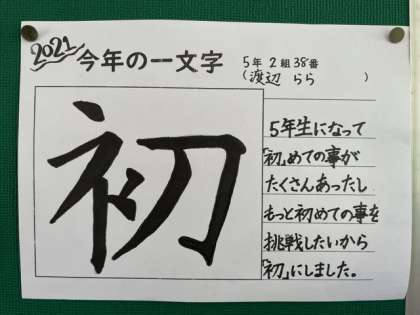 2021
今年の一文字
5年 2組 38番
(渡辺 らら )
初
5年生になって
「初」めての事が
たくさんあったし
もっと初めての事を
挑戦したいから
「初」にしました。